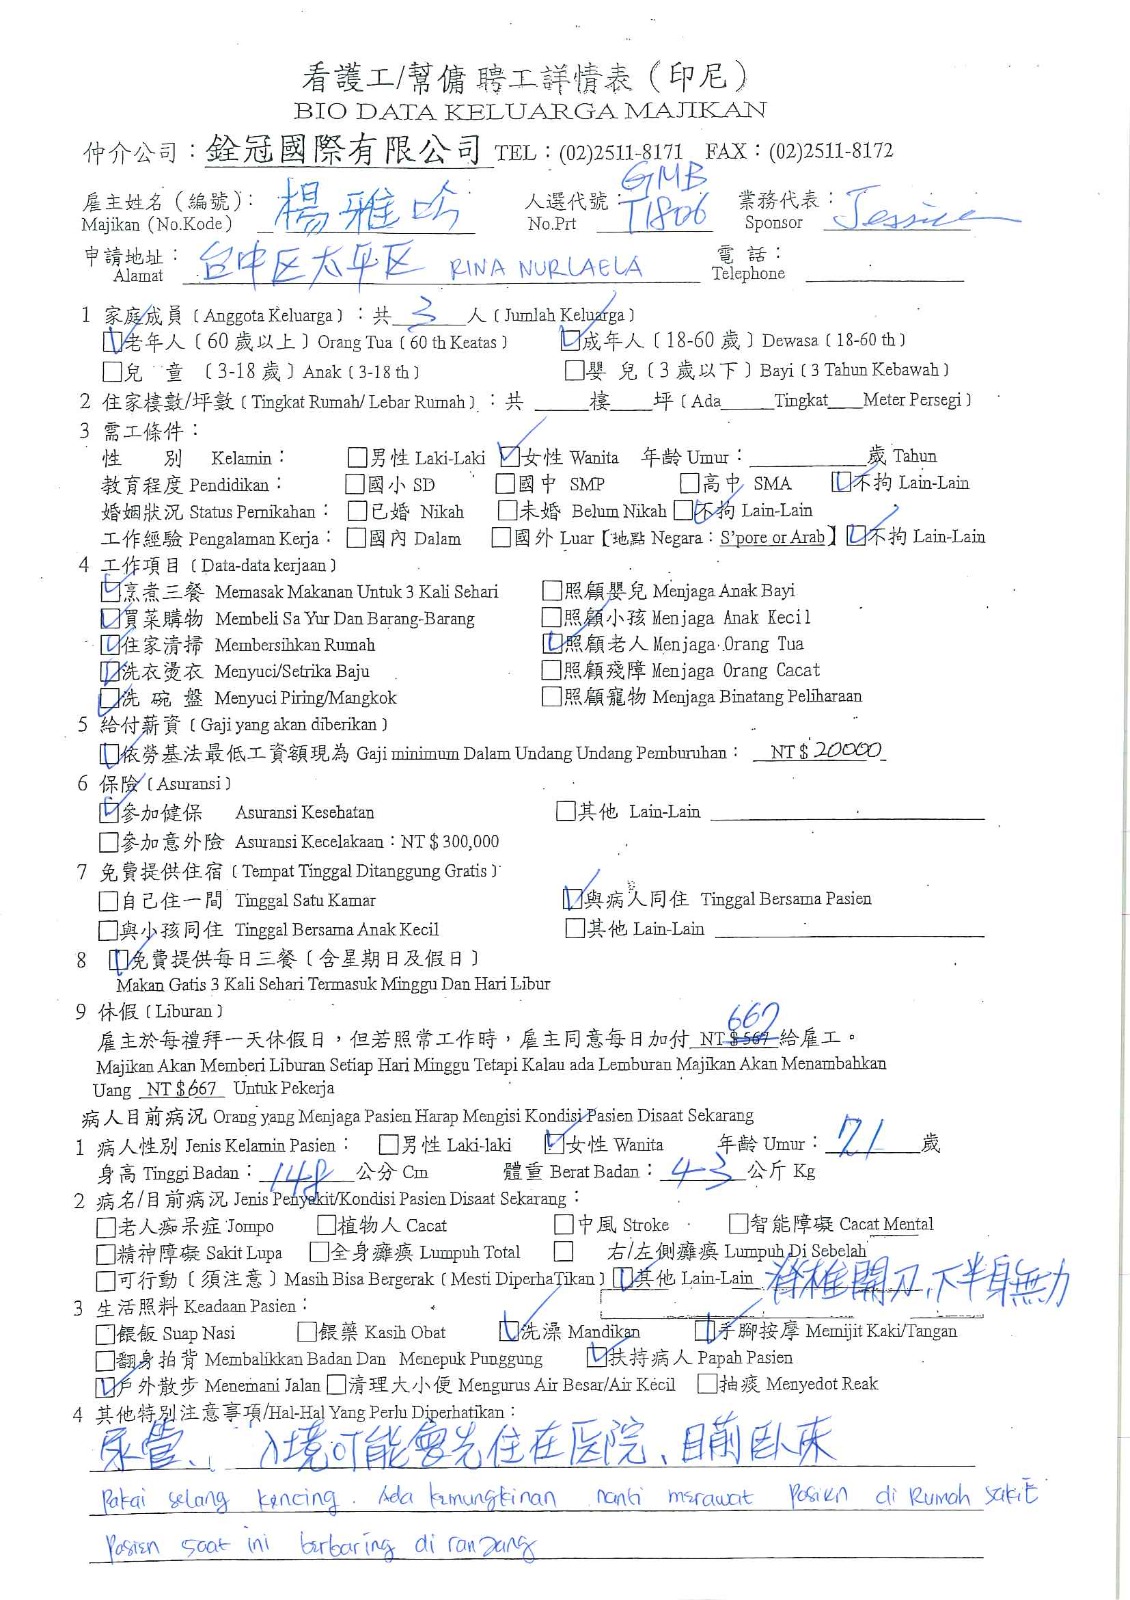 看護工/幫傭 聘工詳情表(印尼)
BIO DATA KELUARGA MAJIKAN
仲介公司:銓冠國際有限公司 TEL:(02)2511-8171 FAX:(02)2511-8172
雇主姓名(編號): 楊雅吟 人選代號: GMB 業務代表: Jessica
Majikan (No.Kode) No.Prt T1806 Sponsor
申請地址: 台中区太平区 RINA NURLAELA 電話:
Alamat Telephone
1 家庭成員(Anggota Keluarga):共 3 人(Jumlah Keluarga)
☑老年人(60歲以上)Orang Tua(60 th Keatas) ☑成年人(18-60歲)Dewasa(18-60 th)
□兒 童 (3-18歲)Anak(3-18 th) □嬰 兒(3歲以下)Bayi(3 Tahun Kebawah)
2 住家樓數/坪數(Tingkat Rumah/ Lebar Rumah):共____樓____坪(Ada____Tingkat____Meter Persegi)
3 需工條件:
性 別 Kelamin: □男性 Laki-Laki ☑女性 Wanita 年齡 Umur:________歲 Tahun
教育程度 Pendidikan: □國小 SD □國中 SMP □高中 SMA ☑不拘 Lain-Lain
婚姻狀況 Status Pernikahan: □已婚 Nikah □未婚 Belum Nikah ☑不拘 Lain-Lain
工作經驗 Pengalaman Kerja: □國內 Dalam □國外 Luar【地點 Negara:S'pore or Arab】☑不拘 Lain-Lain
4 工作項目(Data-data kerjaan)
☑烹煮三餐 Memasak Makanan Untuk 3 Kali Sehari □照顧嬰兒 Menjaga Anak Bayi
☑買菜購物 Membeli Sa Yur Dan Barang-Barang □照顧小孩 Menjaga Anak Kecil
☑住家清掃 Membersihkan Rumah ☑照顧老人 Menjaga Orang Tua
☑洗衣燙衣 Menyuci/Setrika Baju □照顧殘障 Menjaga Orang Cacat
☑洗 碗 盤 Menyuci Piring/Mangkok □照顧寵物 Menjaga Binatang Peliharaan
5 給付薪資(Gaji yang akan diberikan)
☑依勞基法最低工資額現為 Gaji minimum Dalam Undang Undang Pemburuhan: NT$ 20000
6 保險(Asuransi)
☑參加健保 Asuransi Kesehatan □其他 Lain-Lain
□參加意外險 Asuransi Kecelakaan:NT $ 300,000
7 免費提供住宿(Tempat Tinggal Ditanggung Gratis)
□自己住一間 Tinggal Satu Kamar ☑與病人同住 Tinggal Bersama Pasien
□與小孩同住 Tinggal Bersama Anak Kecil □其他 Lain-Lain
8 ☑免費提供每日三餐(含星期日及假日)
Makan Gatis 3 Kali Sehari Termasuk Minggu Dan Hari Libur
9 休假(Liburan)
667
雇主於每禮拜一天休假日,但若照常工作時,雇主同意每日加付 NT $ 567 給雇工。
Majikan Akan Memberi Liburan Setiap Hari Minggu Tetapi Kalau ada Lemburan Majikan Akan Menambahkan
Uang NT $ 667 Untuk Pekerja
病人目前病況 Orang yang Menjaga Pasien Harap Mengisi Kondisi Pasien Disaat Sekarang
1 病人性別 Jenis Kelamin Pasien: □男性 Laki-laki ☑女性 Wanita 年齡 Umur: 71 歲
身高 Tinggi Badan: 148 公分 Cm 體重 Berat Badan: 43 公斤 Kg
2 病名/目前病況 Jenis Penyakit/Kondisi Pasien Disaat Sekarang:
□老人痴呆症 Jompo □植物人 Cacat □中風 Stroke □智能障礙 Cacat Mental
□精神障礙 Sakit Lupa □全身癱瘓 Lumpuh Total □ 右/左側癱瘓 Lumpuh Di Sebelah
□可行動(須注意)Masih Bisa Bergerak(Mesti DiperhaTikan) ☑其他 Lain-Lain 脊椎開刀、下半身無力
3 生活照料 Keadaan Pasien:
□餵飯 Suap Nasi □餵藥 Kasih Obat ☑洗澡 Mandikan ☑手腳按摩 Memijit Kaki/Tangan
□翻身拍背 Membalikkan Badan Dan Menepuk Punggung ☑扶持病人 Papah Pasien
☑戶外散步 Menemani Jalan □清理大小便 Mengurus Air Besar/Air Kecil □抽痰 Menyedot Reak
4 其他特別注意事項/Hal-Hal Yang Perlu Diperhatikan:
尿管、 入境可能會先住在医院、目前臥床
Pakai selang kencing. Ada kemungkinan nanti merawat pasien di Rumah sakit
Pasien saat ini berbaring di ranjang